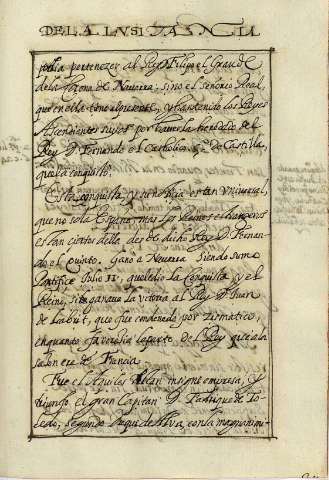 DE LA LVSITANIA
podia pertenezer al Rey Filipe el Grande
de la Corona de Navarra: sino el señorio Real,
que en ella tiene al presente, y han tenido los Reyes
Ascendientes suyos por haverla heredado del
Rey D. Fernando el Catholico, de Castilla,
que la conquistó.
Esta conquista, y su es tan universal,
que no solo España, mas los Reinos estrangeros
es tan ciertos della desde el dicho Rey D. Fernan-
do el Quinto. Ganó a Navarra siendo sumo
Pontifice Julio II, que le dio la Conquista y el
Reino, si ganava la vitoria al Rey D. Juan
de Labrit, que fue condenado por zismatico,
en quanto favorecia la parte del Rey que a la
sazon era de Francia.
Fue el desta insigne empresa, y
triunfo el gran Capitan D. Fadrique de To-
ledo, segundo Duque de Alva, con la magnanimi-